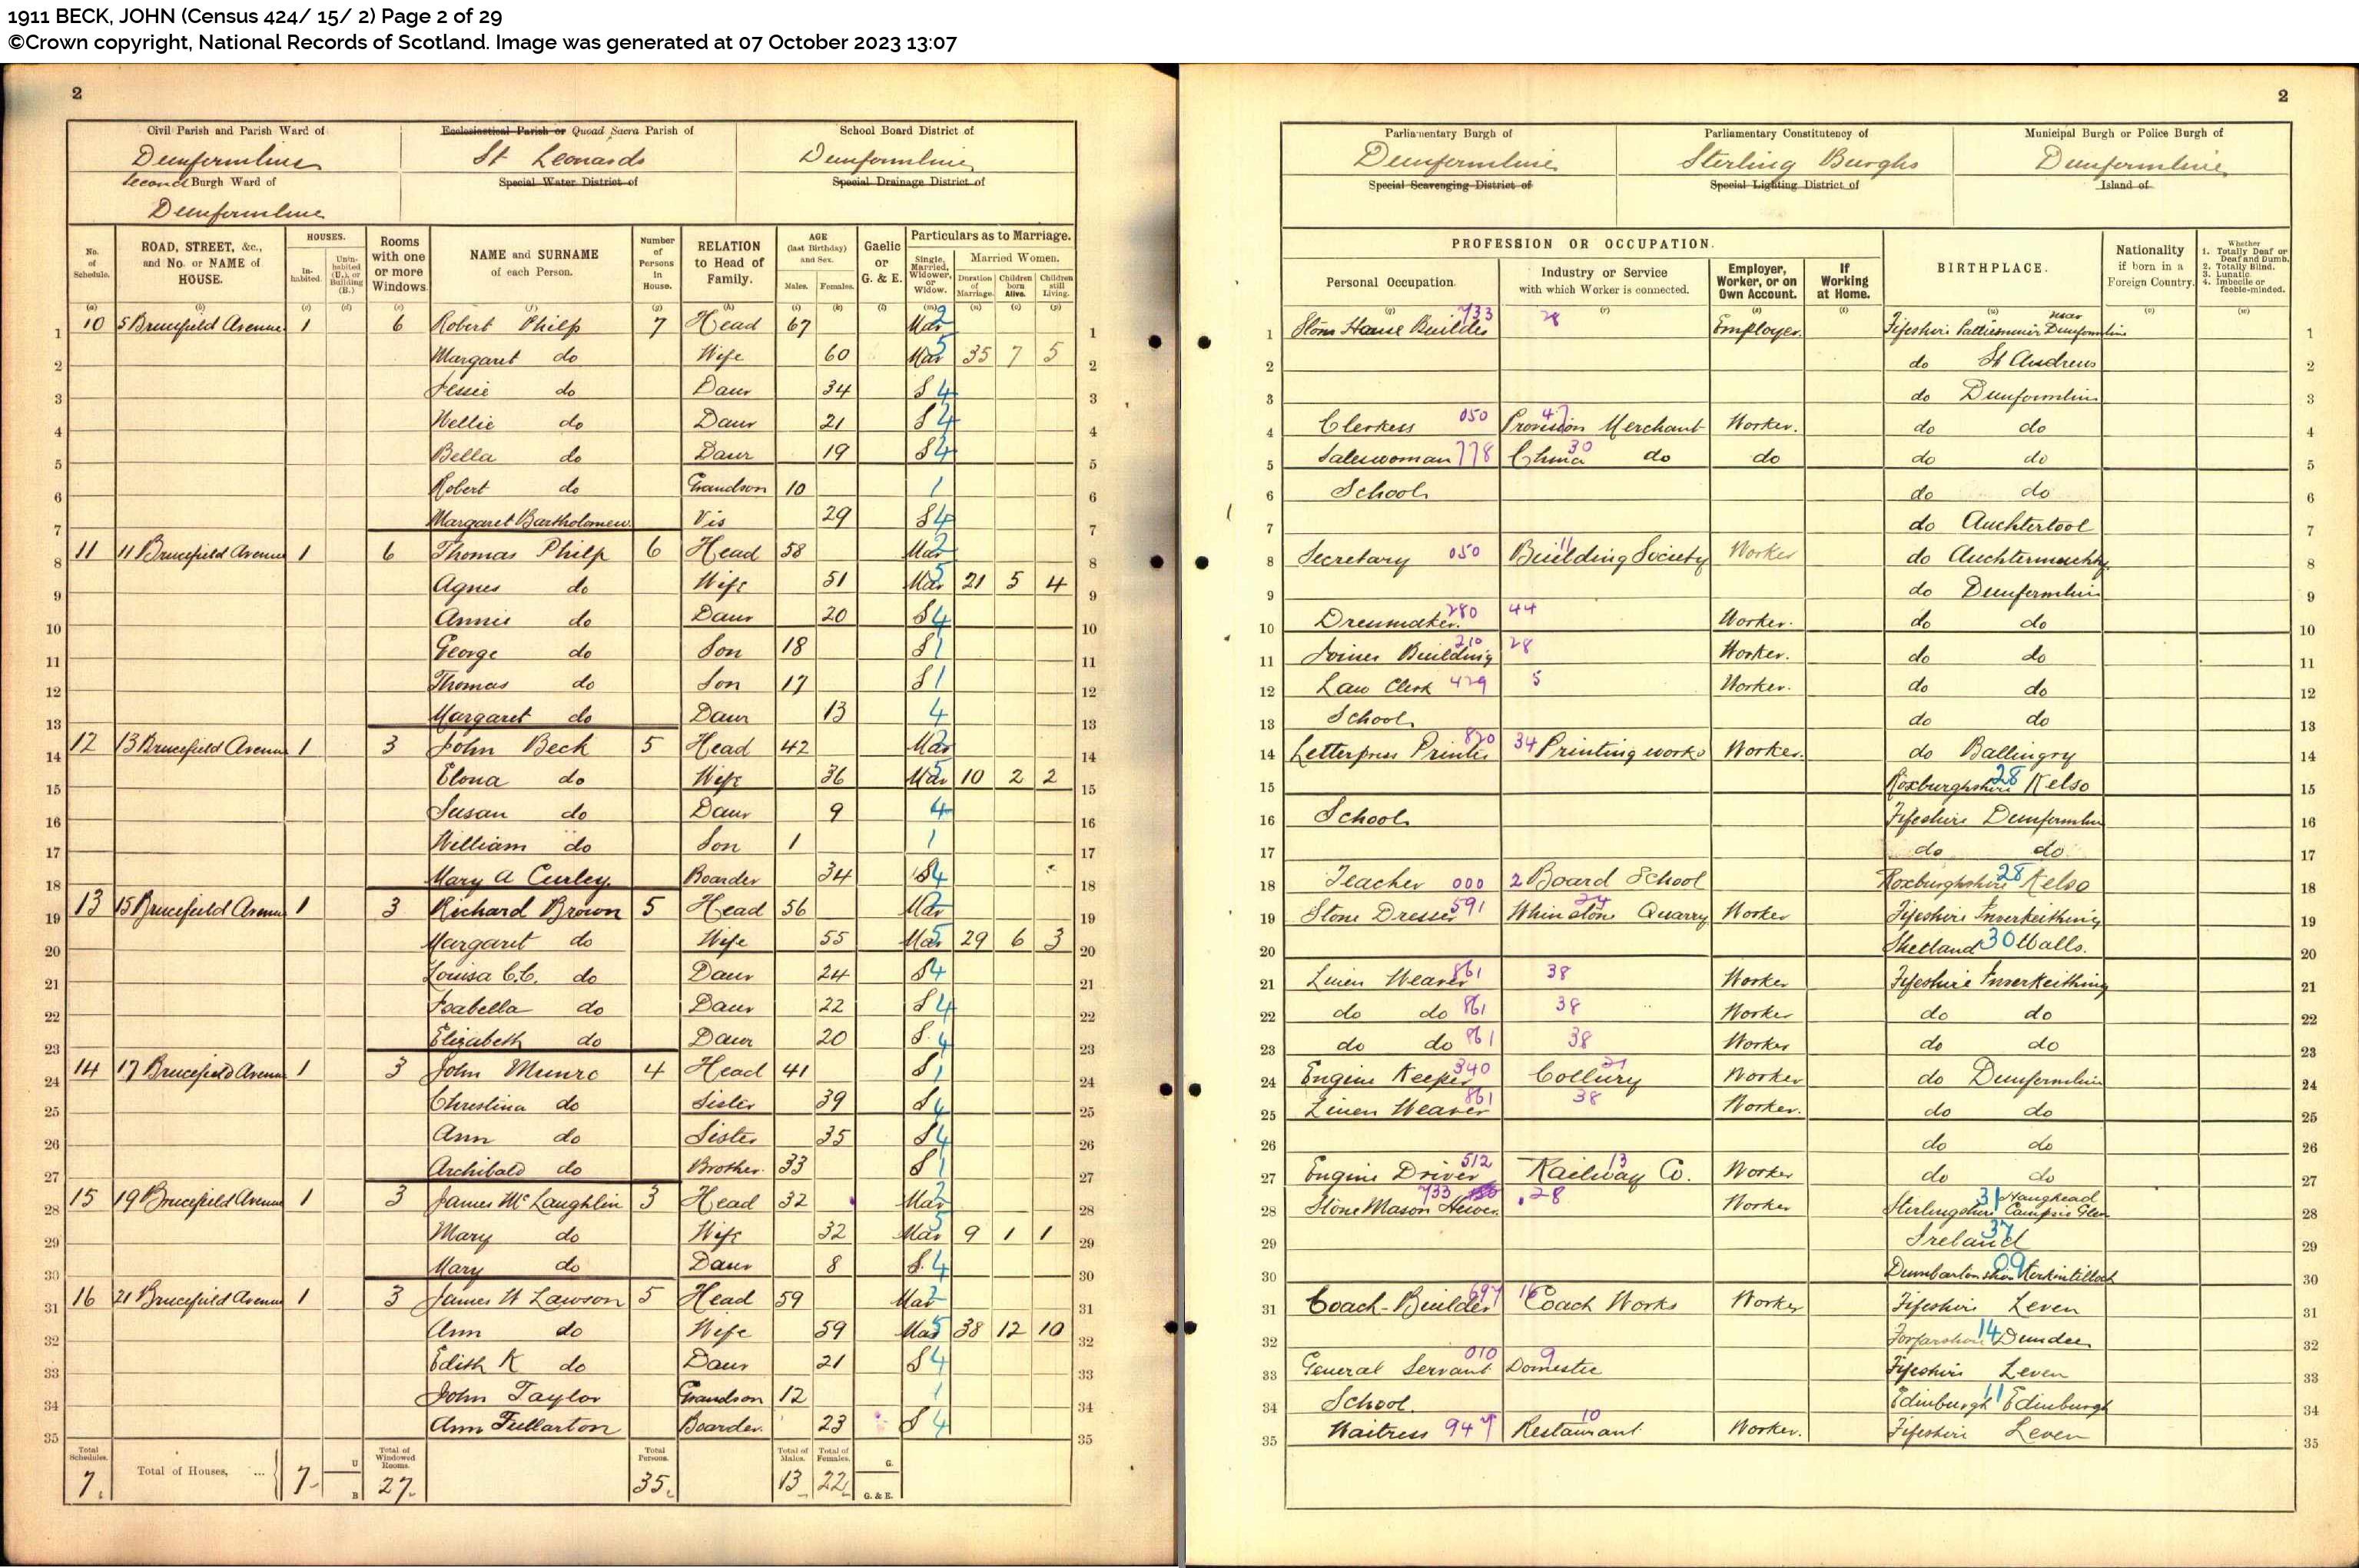 1911 BECK, JOHN (Census 424/ 15/ 2) Page 2 of 29
©Crown copyright, National Records of Scotland. Image was generated at 07 October 2023 13:07
2
Civil Parish and Parish Ward of Ecclesiastical Parish or Quoad Sacra Parish of School Board District of
Dunfermline St Leonards Dunfermline
Second Burgh Ward of Special Water District of Special Drainage District of
Dunfermline
No. of Schedule. ROAD, STREET, &c., and No. or NAME of HOUSE. HOUSES. Inhabited. Uninhabited (U.), or Building (B.) Rooms with one or more Windows. NAME and SURNAME of each Person. Number of Persons in House. RELATION to Head of Family. AGE (last Birthday) and Sex. Males. Females. Gaelic or G. & E. Particulars as to Marriage. Single, Married, Widower, or Widow. Married Women. Duration of Marriage. Children born Alive. Children still Living.
(a) (b) (c) (d) (e) (f) (g) (h) (i) (k) (l) (m) (n) (o) (p)
10 5 Brucefield Avenue 1 6 Robert Philp 7 Head 67 Mar 2 1
2 Margaret do Wife 60 Mar 5 35 7 5 2
3 Jessie do Daur 34 S 4 3
4 Nellie do Daur 21 S 4 4
5 Bella do Daur 19 S 4 5
6 Robert do Grandson 10 1 6
7 Margaret Bartholomew Vis 29 S 4 7
8 11 11 Brucefield Avenue 1 6 Thomas Philp 6 Head 58 Mar 2 8
9 Agnes do Wife 51 Mar 5 21 5 4 9
10 Annie do Daur 20 S 4 10
11 George do Son 18 S 1 11
12 Thomas do Son 17 S 1 12
13 Margaret do Daur 13 4 13
14 12 13 Brucefield Avenue 1 3 John Beck 5 Head 42 Mar 2 14
15 Elona do Wife 36 Mar 5 10 2 2 15
16 Susan do Daur 9 4 16
17 William do Son 1 1 17
18 Mary A Curley. Boarder 34 S 4 18
19 13 15 Brucefield Avenue 1 3 Richard Brown 5 Head 56 Mar 2 19
20 Margaret do Wife 55 Mar 5 29 6 3 20
21 Louisa C.C. do Daur 24 S 4 21
22 Isabella do Daur 22 S 4 22
23 Elizabeth do Daur 20 S. 4 23
24 14 17 Brucefield Avenue 1 3 John Munro 4 Head 41 S 1 24
25 Christina do Sister 39 S 4 25
26 Ann do Sister 35 S 4 26
27 Archibald do Brother. 33 S 1 27
28 15 19 Brucefield Avenue 1 3 James McLaughlin 3 Head 32 Mar 2 28
29 Mary do Wife 32 Mar 5 9 1 1 29
30 Mary do Daur 8 S. 4 30
31 16 21 Brucefield Avenue 1 3 James W Lawson 5 Head 59 Mar 2 31
32 Ann do Wife 59 Mar 5 38 12 10 32
33 Edith K do Daur 21 S 4 33
34 John Taylor Grandson 12 1 34
35 Ann Fullarton Boarder. 23 S 4 35
Total Schedules. 7 Total of Houses, ... 7 U B Total of Windowed Rooms. 27 Total Persons. 35 Total of Males. 13 Total of Females. 22 G. G. & E.
2
Parliamentary Burgh of Parliamentary Constitutency of Municipal Burgh or Police Burgh of
Dunfermline Stirling Burghs Dunfermline
Special Scavenging District of Special Lighting District of Island of
PROFESSION OR OCCUPATION. Personal Occupation. Industry or Service with which Worker is connected. Employer, Worker, or on Own Account. If Working at Home. BIRTHPLACE. Nationality if born in a Foreign Country. Whether 1. Totally Deaf or Deaf and Dumb. 2. Totally Blind. 3. Lunatic. 4. Imbecile or feeble-minded.
(q) (r) (s) (t) (u) (v) (w)
1 Stone House Builder 733 28 Employer. Fifeshire Pattiesmuir near Dunfermline 1
2 do St Andrews 2
3 do Dunfermline 3
4 Clerkess 050 Provision Merchant 47 Worker. do do 4
5 Saleswoman 778 China do 30 do do do 5
6 School do do 6
7 do Auchtertool 7
8 Secretary 050 Building Society 11 Worker do Auchtermuchty 8
9 do Dunfermline 9
10 Dressmaker. 280 44 Worker. do do 10
11 Joiner Building 210 28 Worker. do do 11
12 Law Clerk 429 5 Worker. do do 12
13 School do do 13
14 Letterpress Printer 820 34 Printing works Worker. do Ballingry 14
15 Roxburghshire 28 Kelso 15
16 School. Fifeshire Dunfermline 16
17 do do 17
18 Teacher 000 2 Board School Roxburghshire 28 Kelso 18
19 Stone Dresser 591 Whinstone Quarry 24 Worker Fifeshire Inverkeithing 19
20 Shetland 30 Walls. 20
21 Linen Weaver 861 38 Worker Fifeshire Inverkeithing 21
22 do do 861 38 Worker do do 22
23 do do 861 38 Worker do do 23
24 Engine Keeper 340 Colliery 21 Worker do Dunfermline 24
25 Linen Weaver 861 38 Worker. do do 25
26 do do 26
27 Engine Driver 512 Railway Co. 13 Worker do do 27
28 Stone Mason Hewer. 733 28 Worker Stirlingshire 31 Haughead Campsie Glen 28
29 Ireland 37 29
30 Dumbartonshire 09 Kirkintilloch 30
31 Coach-Builder 697 16 Coach Works Worker Fifeshire Leven 31
32 Forfarshire 14 Dundee 32
33 General Servant 010 Domestic 9 Fifeshire Leven 33
34 School. Edinburgh 11 Edinburgh 34
35 Waitress 947 Restaurant 10 Worker. Fifeshire Leven 35